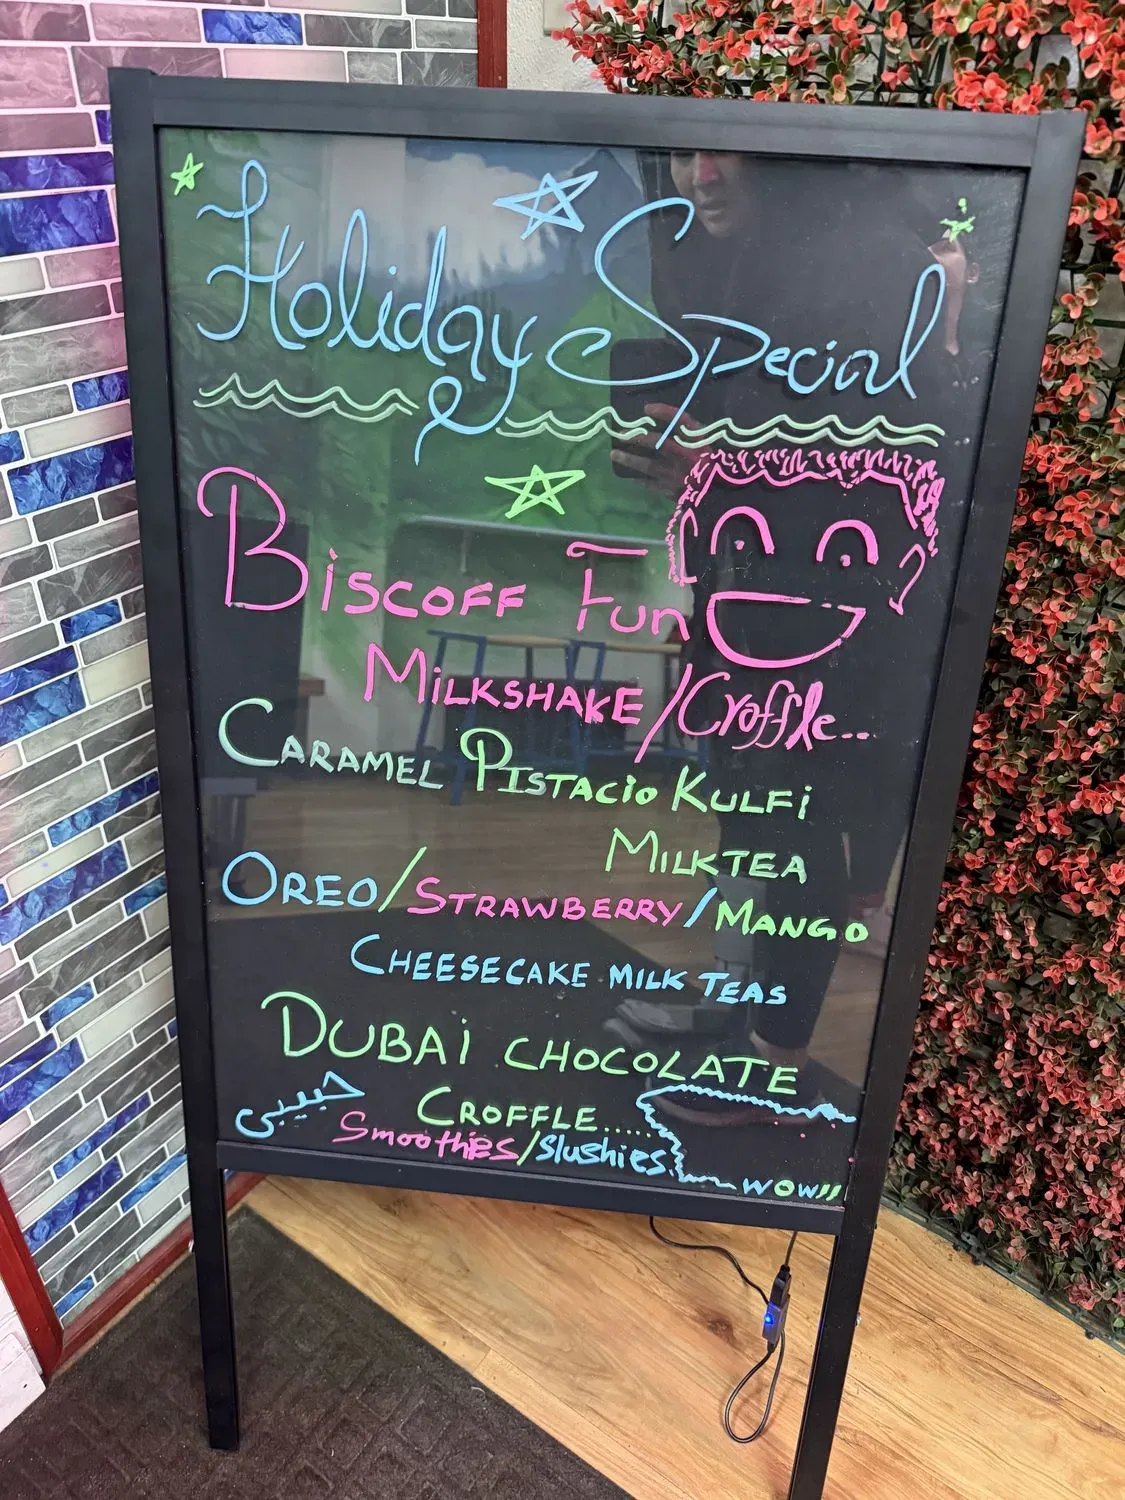 Holiday Special
Biscoff Fun
Milkshake/Croffle...
Caramel Pistacio Kulfi
Milktea
Oreo/Strawberry/Mango
Cheesecake Milk Teas
Dubai Chocolate
Croffle.....
حبيبي
Smoothies/Slushies
wow!!